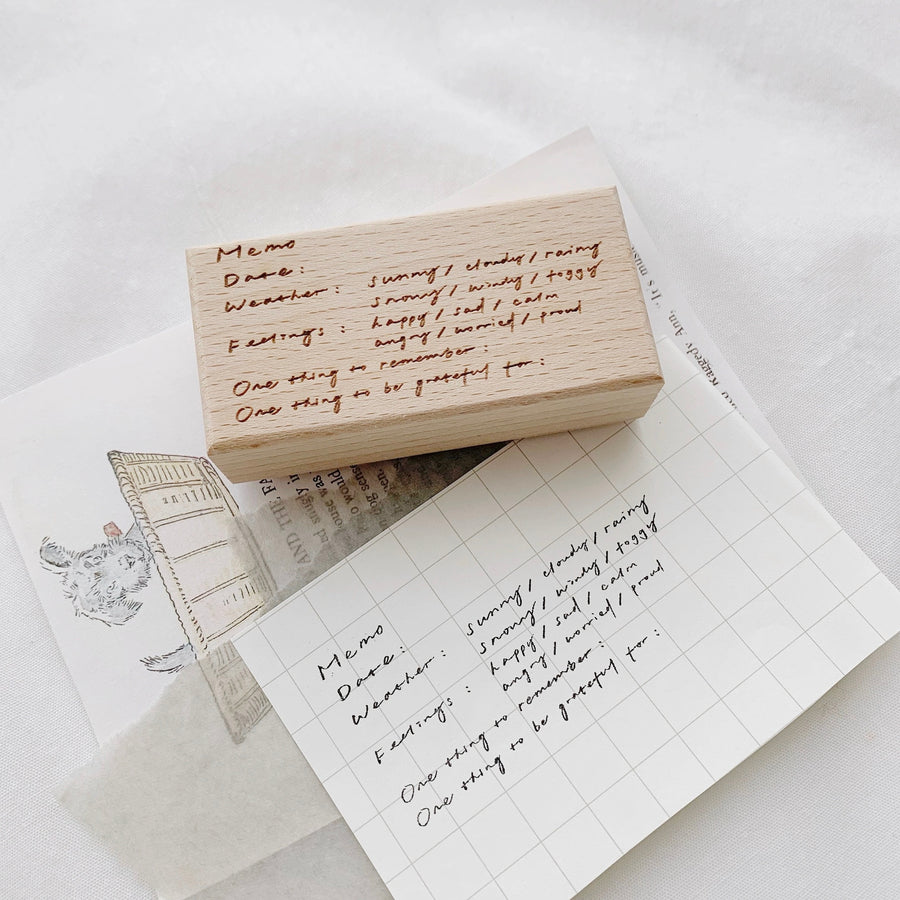 Memo
Date:
Weather: sunny / cloudy / rainy
snowy / windy / foggy
Feelings: happy / sad / calm
angry / worried / proud
One thing to remember:
One thing to be grateful for:
Raggedy Ann, "It's
AND THE FA
Memo
Date:
Weather: sunny / cloudy / rainy
snowy / windy / foggy
Feelings: happy / sad / calm
angry / worried / proud
One thing to remember:
One thing to be grateful for: